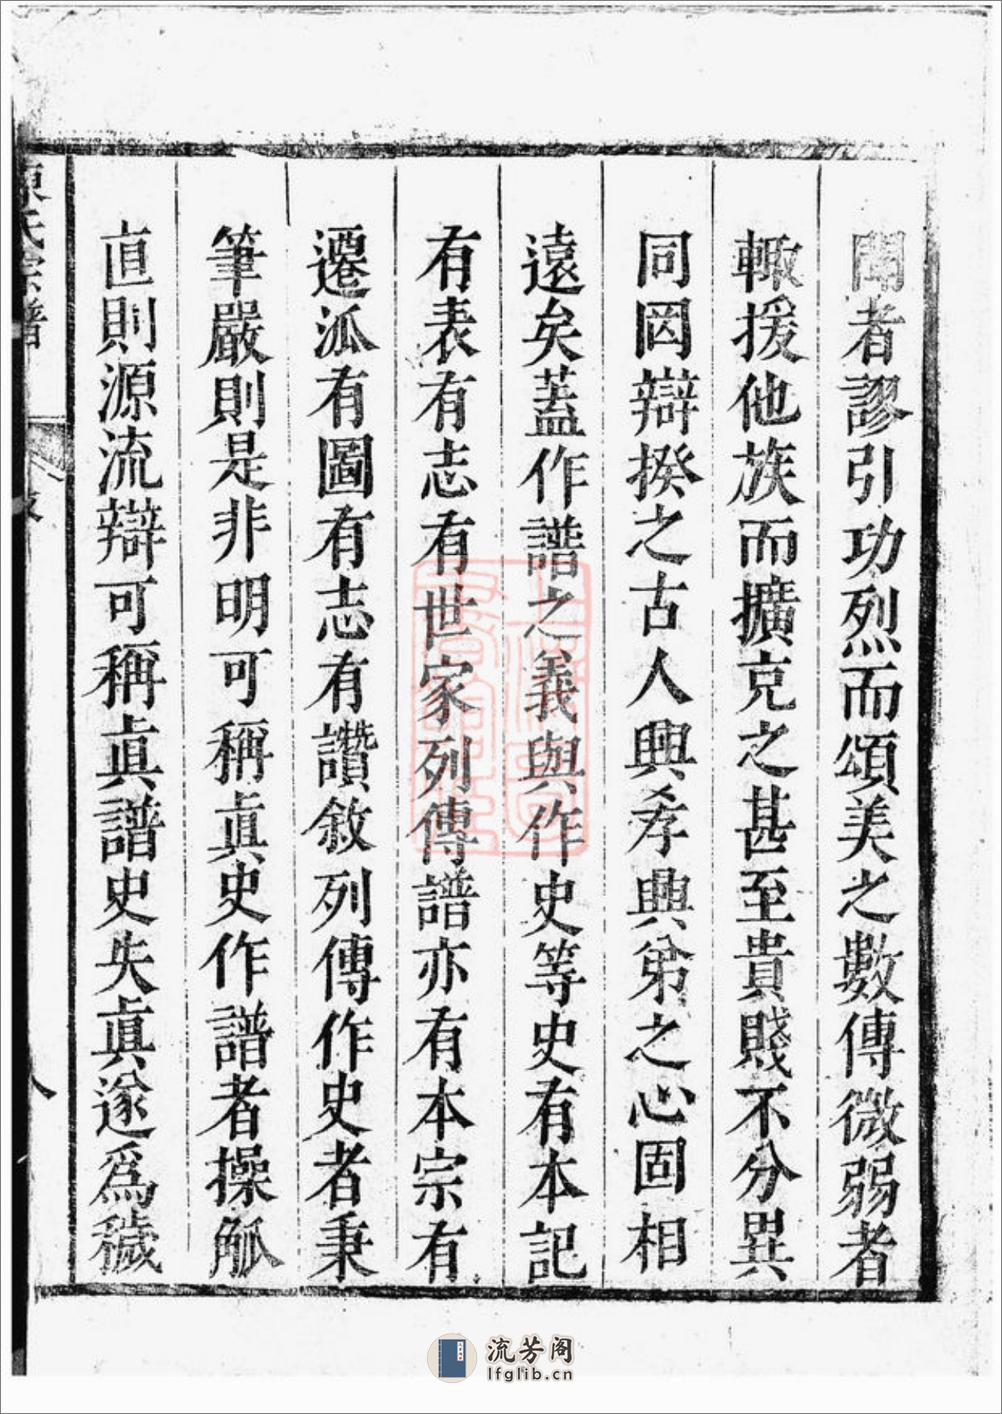 聞者謬引功烈而頌美之數傳微弱者
輙援他族而擴克之甚至貴賤不分異
同罔辯揆之古人興孝興弟之心固相
遠矣蓋作譜之義與作史等史有本記
有表有志有世家列傳譜亦有本宗有
遷派有圖有志有讚敘列傳作史者秉
筆嚴則是非明可稱眞史作譜者操觚
直則源流辯可稱眞譜史失眞遂爲穢
氏宗譜
八
流芳阁
lfglib.cn